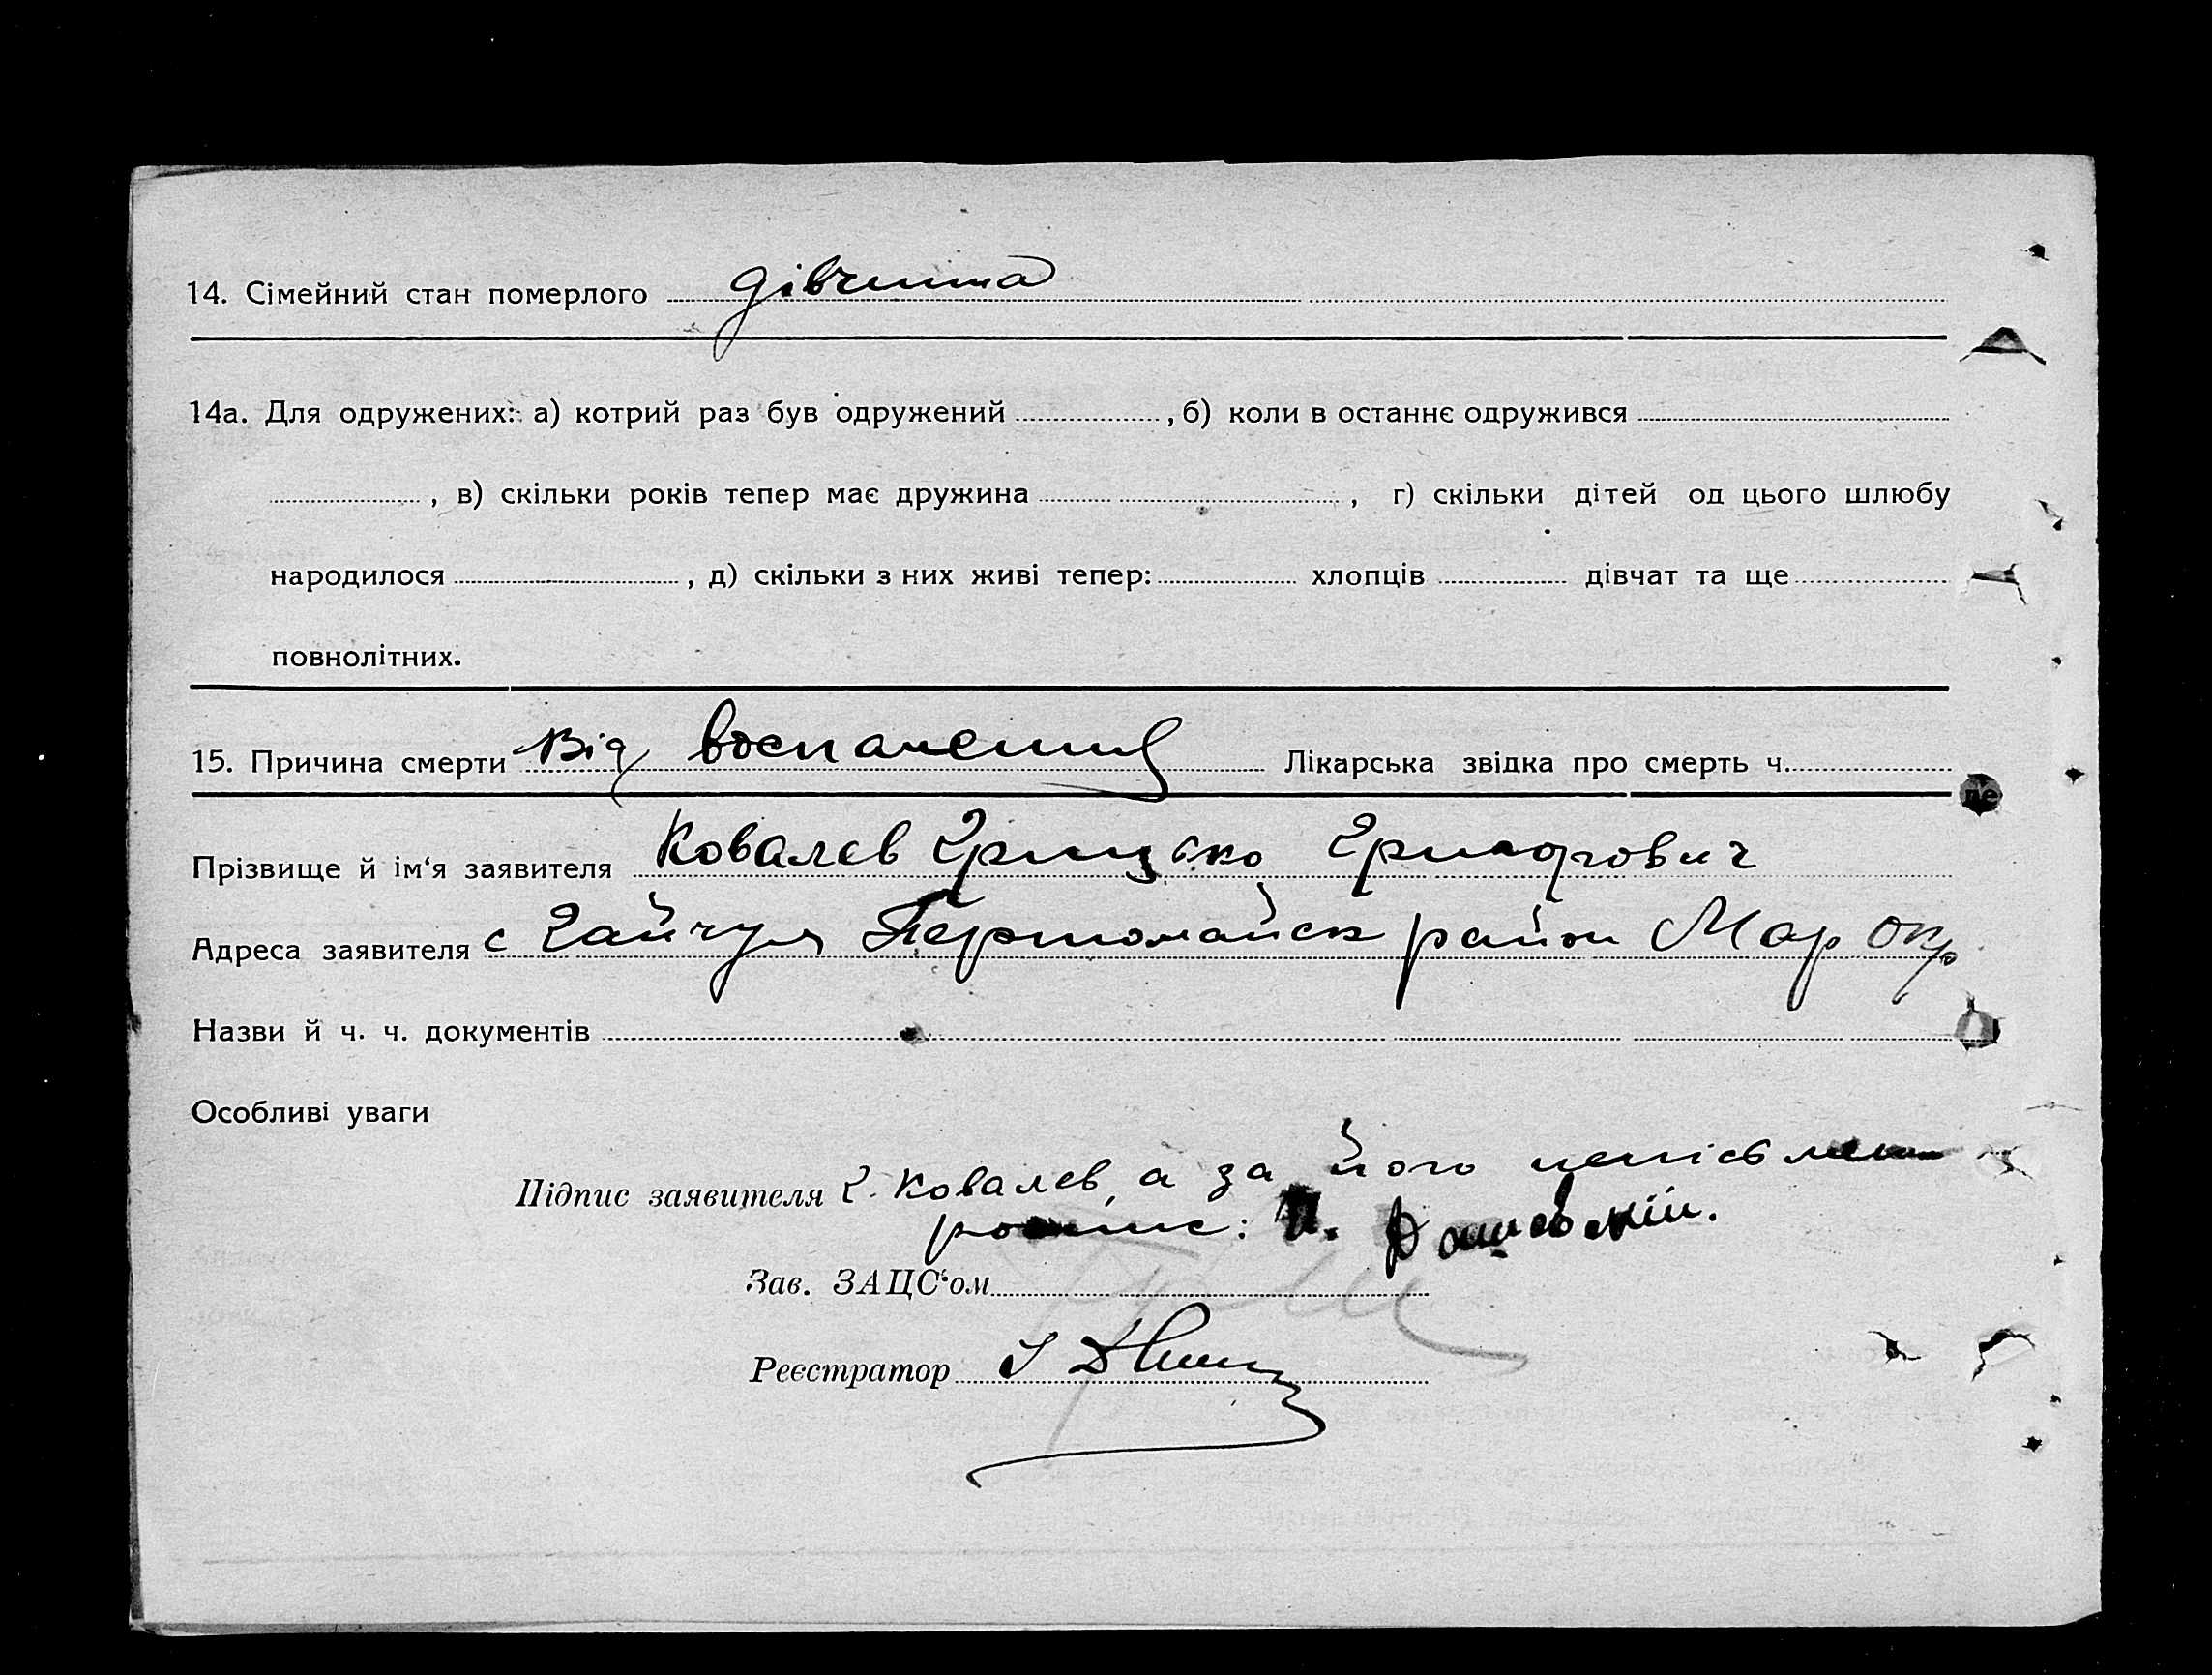 14. Сімейний стан померлого дівчина
14а. Для одружених: а) котрий раз був одружений , б) коли в останнє одружився
, в) скільки років тепер має дружина , г) скільки дітей од цього шлюбу
народилося , д) скільки з них живі тепер: хлопців дівчат та ще
повнолітних.
15. Причина смерти Від воспаления Лікарська звідка про смерть ч.
Прізвище й ім'я заявителя Ковалєв Грицько
Адреса заявителя с Гайчул Першомайск район Мар Окр
Назви й ч. ч. документів
Особливі уваги
Підпис заявителя Г. Ковалєв, а за його
роспис: П.
Зав. ЗАЦС'ом
Реєстратор